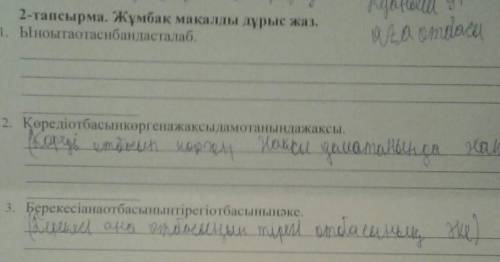 2-тапсырма. Жұмбақ мақалды дұрыс жаз.
1. Ыноытаотаснбандасталаб.
аза отбасы
2. Көредіотбасынкөргенажақсыдамотанындажақсы.
(Көреді отбасын көрген жақсы дамотанында жақ
3. Берекесіанаотбасыныңтірегіотбасыныңәке.
(Берекесі ана отбасының тірегі отбасының әке)